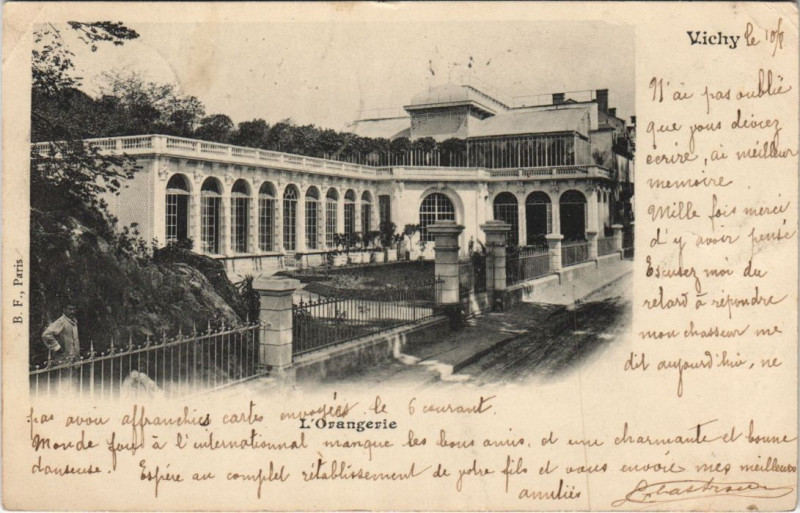 Vichy le 10/8
N'ai pas oublié
que vous deviez
ecrire, ai meilleur
memoire.
Mille fois merci
d'y avoir pensé
Excusez moi du
retard à répondre
mon chasseur me
dit aujourd'hui, ne
pas avoir affranchies cartes envoyées le 6 courant.
L'Orangerie
Monde fou à l'international manque les bons amis, et une charmante et bonne
danseuse. Espère au complet rétablissement de votre fils et vous envoie mes meilleurs
amitiés
B. F., Paris